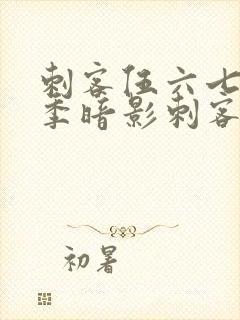 刺客伍六七
季暗影刺客
初暑